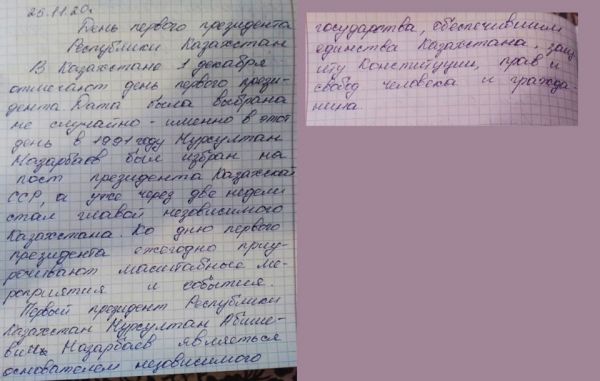 26.11.20г
День первого президента
Республики Казахстан
В Казахстане 1 декабря
отмечают день первого прези-
дента Дата была выбрана
не случайно - именно в этот
день в 1991 году Нурсултан
Назарбаев был избран на
пост президента Казахской
ССР, а уже через две недели
стал главой независимого
Казахстана. Ко дню первого
президента ежегодно приу-
рочивают масштабные ме-
роприятия и события.
Первый президент Республики
Казахстан Нурсултан Абише-
вич Назарбаев являеться
основателем независимого
государства, обеспечившим
единства Казахстана, защ-
иту Конституции, прав и
свобод человека и гражда-
нина.